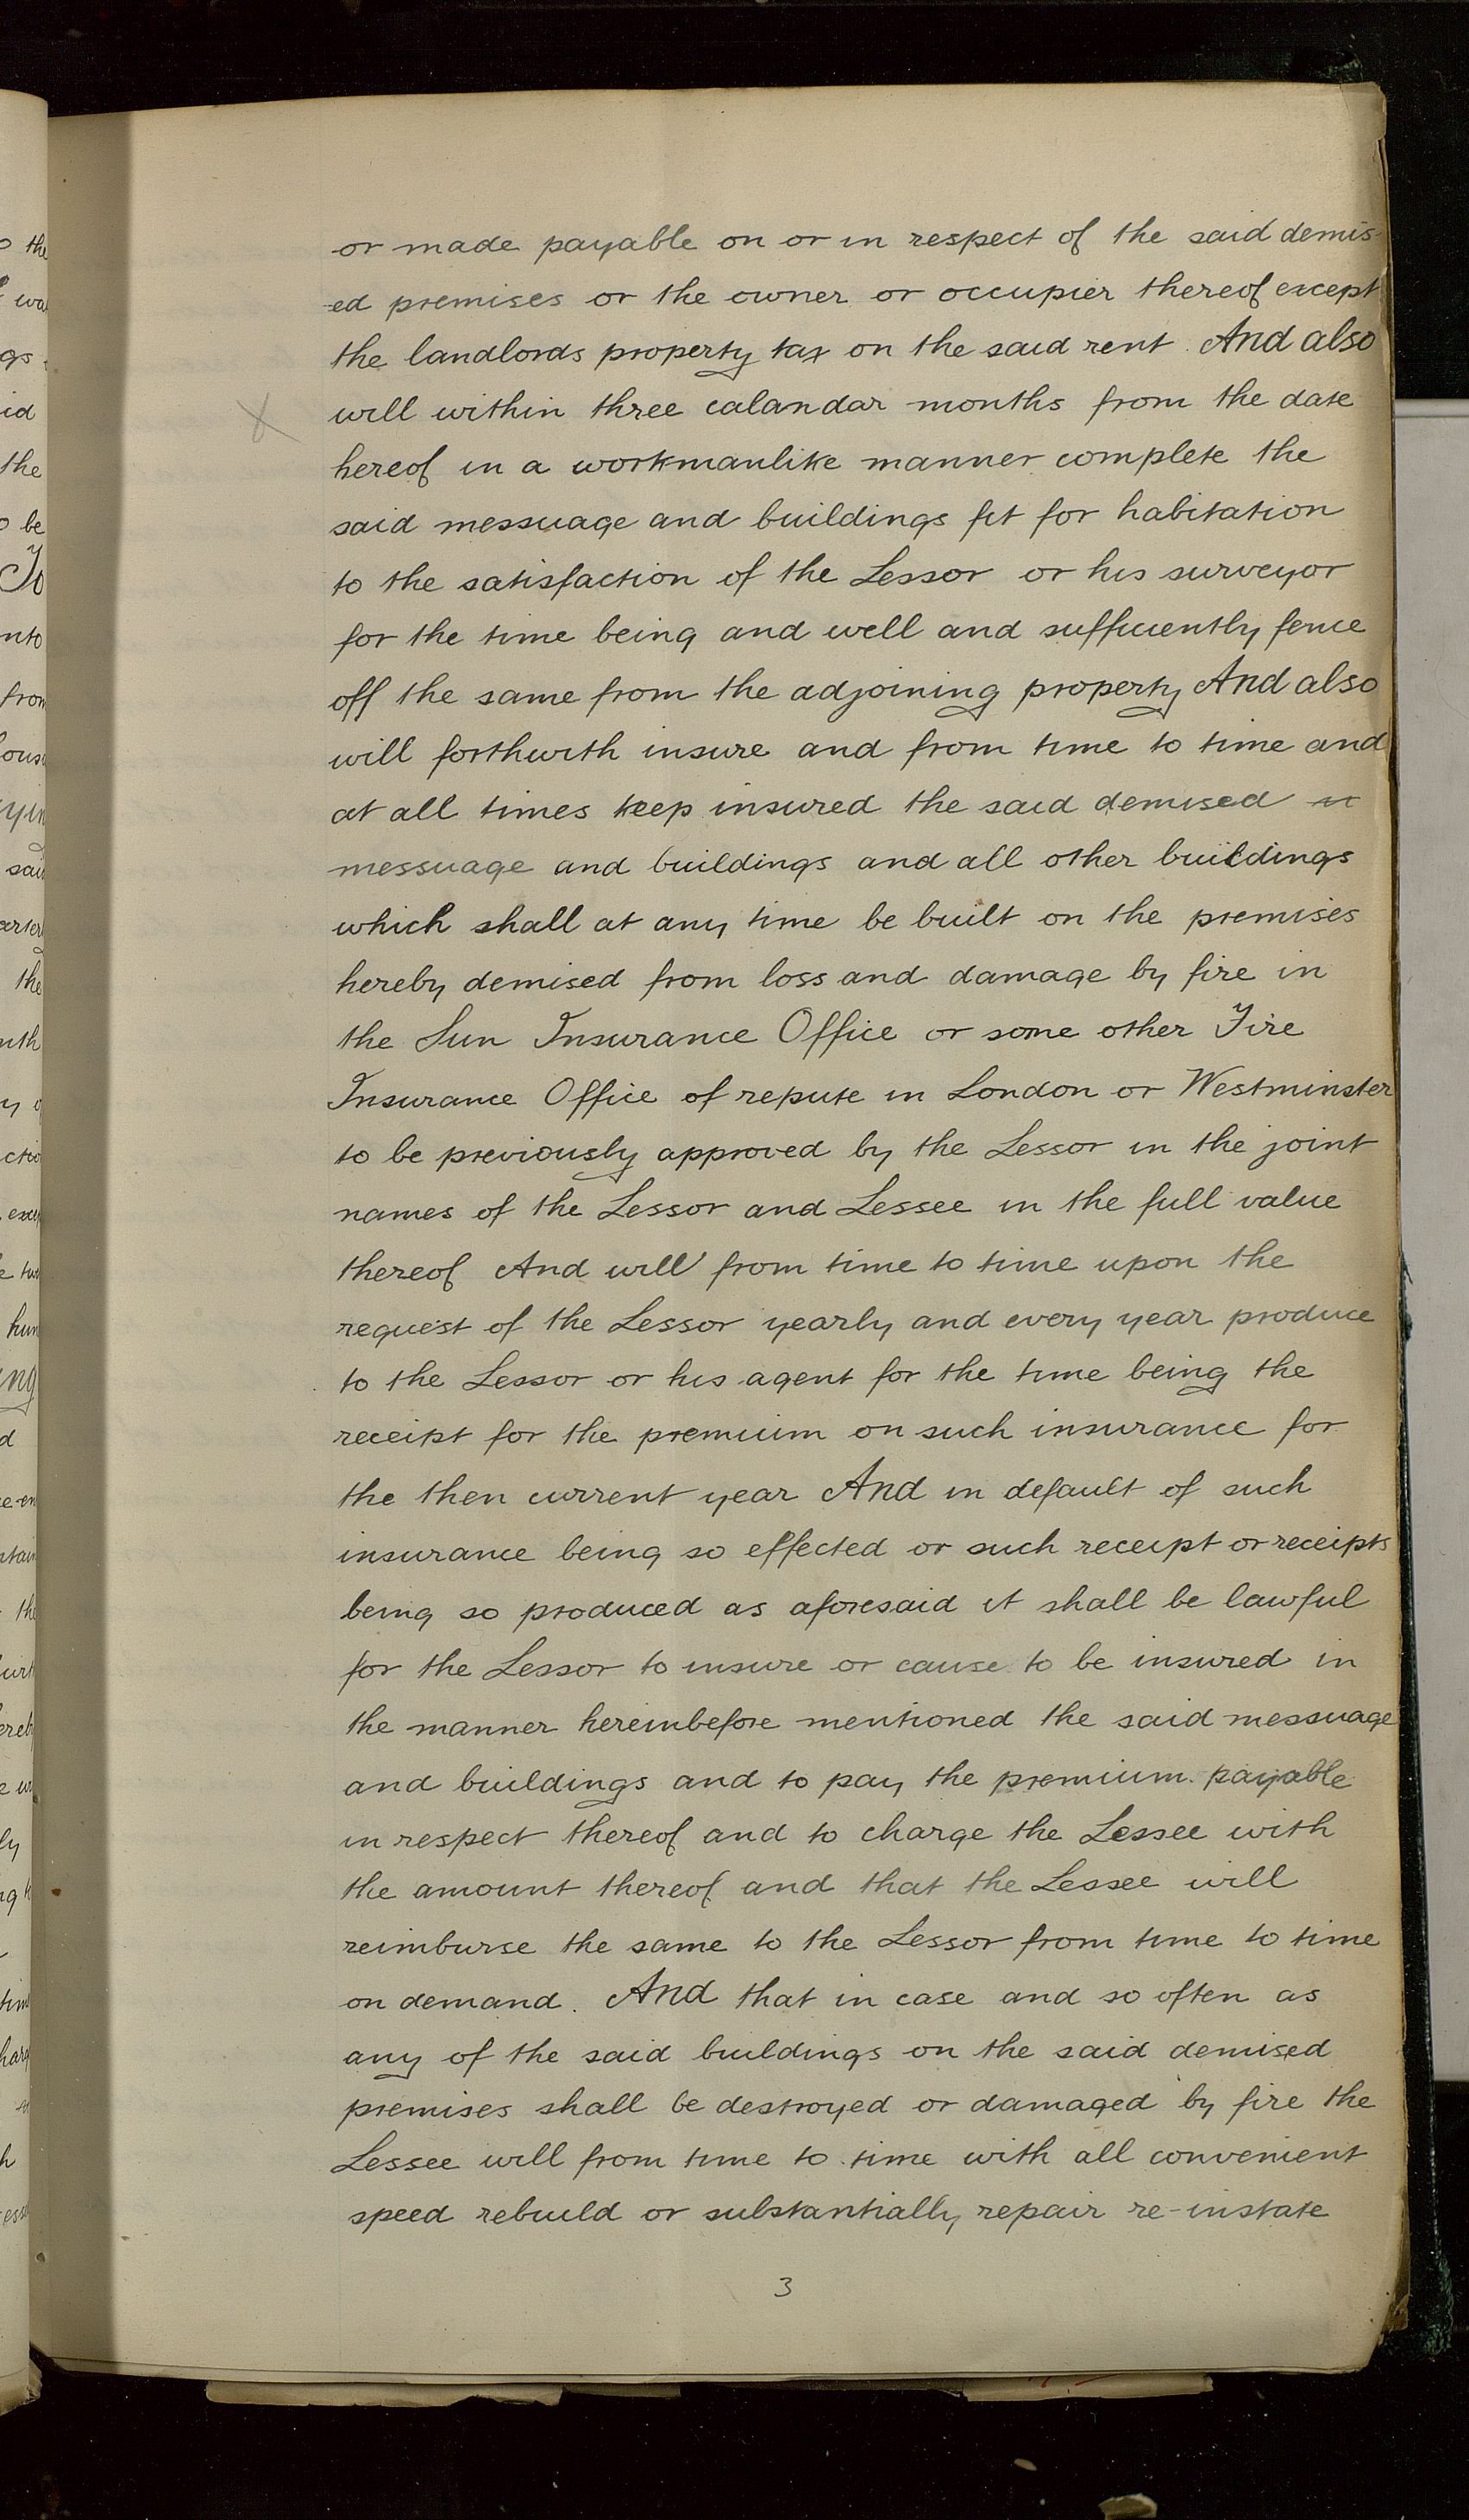 or made payable on or in respect of the said demis-
-ed premises or the owner or occupier thereof except
the landlords property tax on the said rent. And also
will within three calandar months from the date
hereof in a workmanlike manner complete the
said messuage and buildings fit for habitation
to the satisfaction of the Lessor or his surveyor
for the time being and well and sufficiently fence
off the same from the adjoining property And also
will forthwith insure and from time to time and
at all times keep insured the said demised
messuage and buildings and all other buildings
which shall at any time be built on the premises
hereby demised from loss and damage by fire in
the Sun Insurance Office or some other Fire
Insurance Office of repute in London or Westminster
to be previously approved by the Lessor in the joint
names of the Lessor and Lessee in the full value
thereof And will from time to time upon the
request of the Lessor yearly and every year produce
to the Lessor or his agent for the time being the
receipt for the premium on such insurance for
the then current year And in default of such
insurance being so effected or such receipt or receipts
being so produced as aforesaid it shall be lawful
for the Lessor to insure or cause to be insured in
the manner hereinbefore mentioned the said messuage
and buildings and to pay the premium payable
in respect thereof and to charge the Lessee with
the amount thereof and that the Lessee will
reimburse the same to the Lessor from time to time
on demand. And that in case and so often as
any of the said buildings on the said demised
premises shall be destroyed or damaged by fire the
Lessee will from time to time with all convenient
speed rebuild or substantially repair re-instate
3